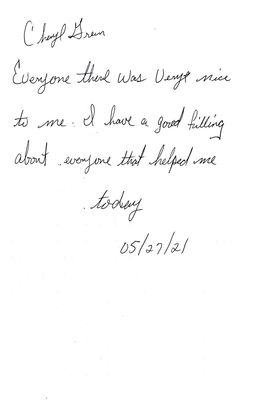 Cheryl Green
Everyone there was very nice
to me. I have a good filling
about everyone that helped me
today
05/27/21